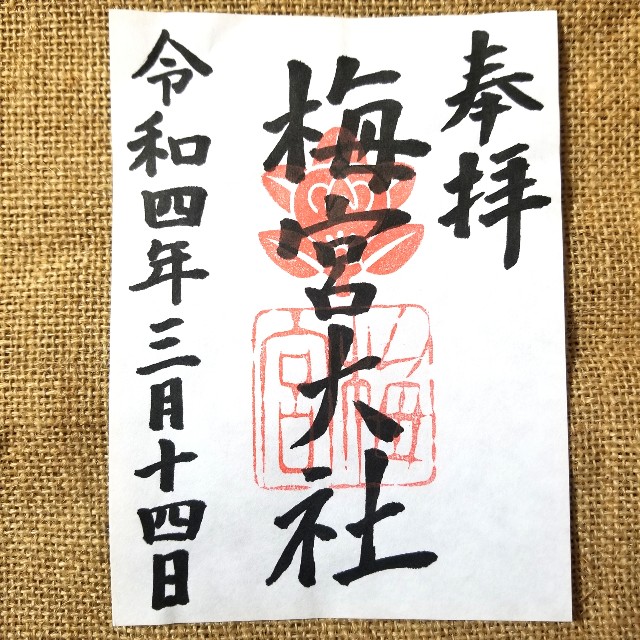 奉拝
梅宮大社
梅宮
令和四年三月十四日